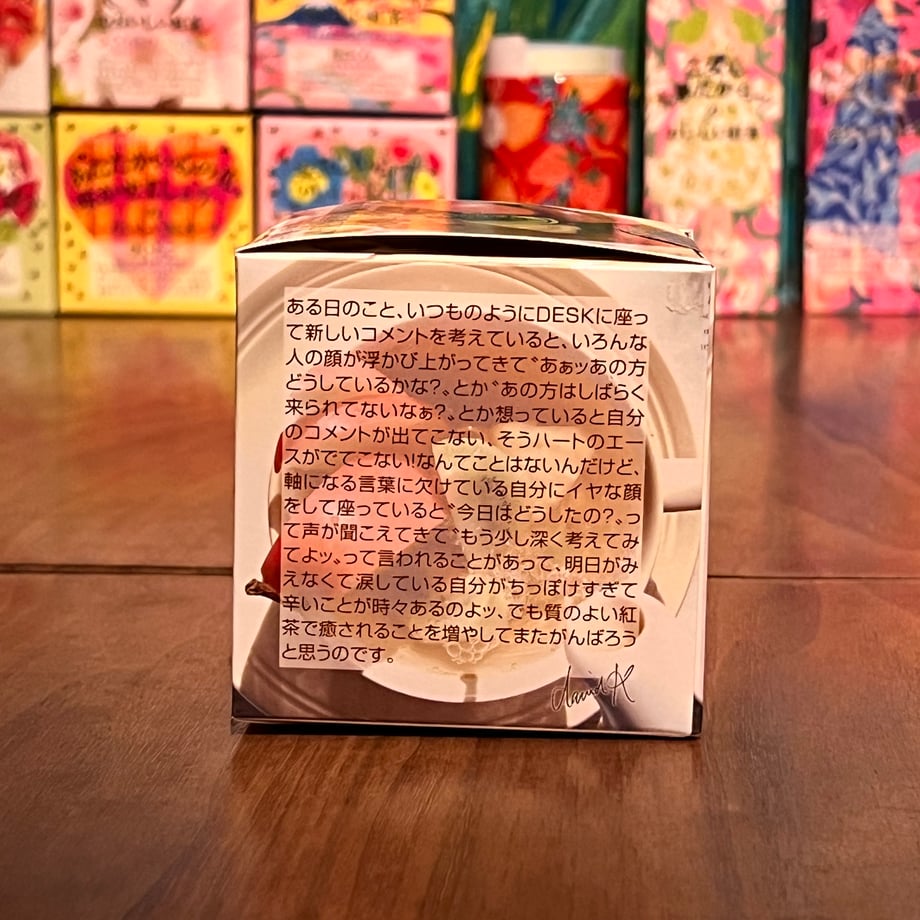 ある日のこと、いつものようにDESKに座っ
て新しいコメントを考えていると、いろんな
人の顔が浮かび上がってきて〝あぁッあの方
どうしているかな?〟とか〝あの方はしばらく
来られてないなぁ?〟とか想っていると自分
のコメントが出てこない、そうハートのエー
スがでてこない!なんてことはないんだけど、
軸になる言葉に欠けている自分にイヤな顔
をして座っていると〝今日はどうしたの?〟っ
て声が聞こえてきて〝もう少し深く考えてみ
てよッ〟って言われることがあって、明日がみ
えなくて涙している自分がちっぽけすぎて
辛いことが時々あるのよッ、でも質のよい紅
茶で癒されることを増やしてまたがんばろう
と思うのです。